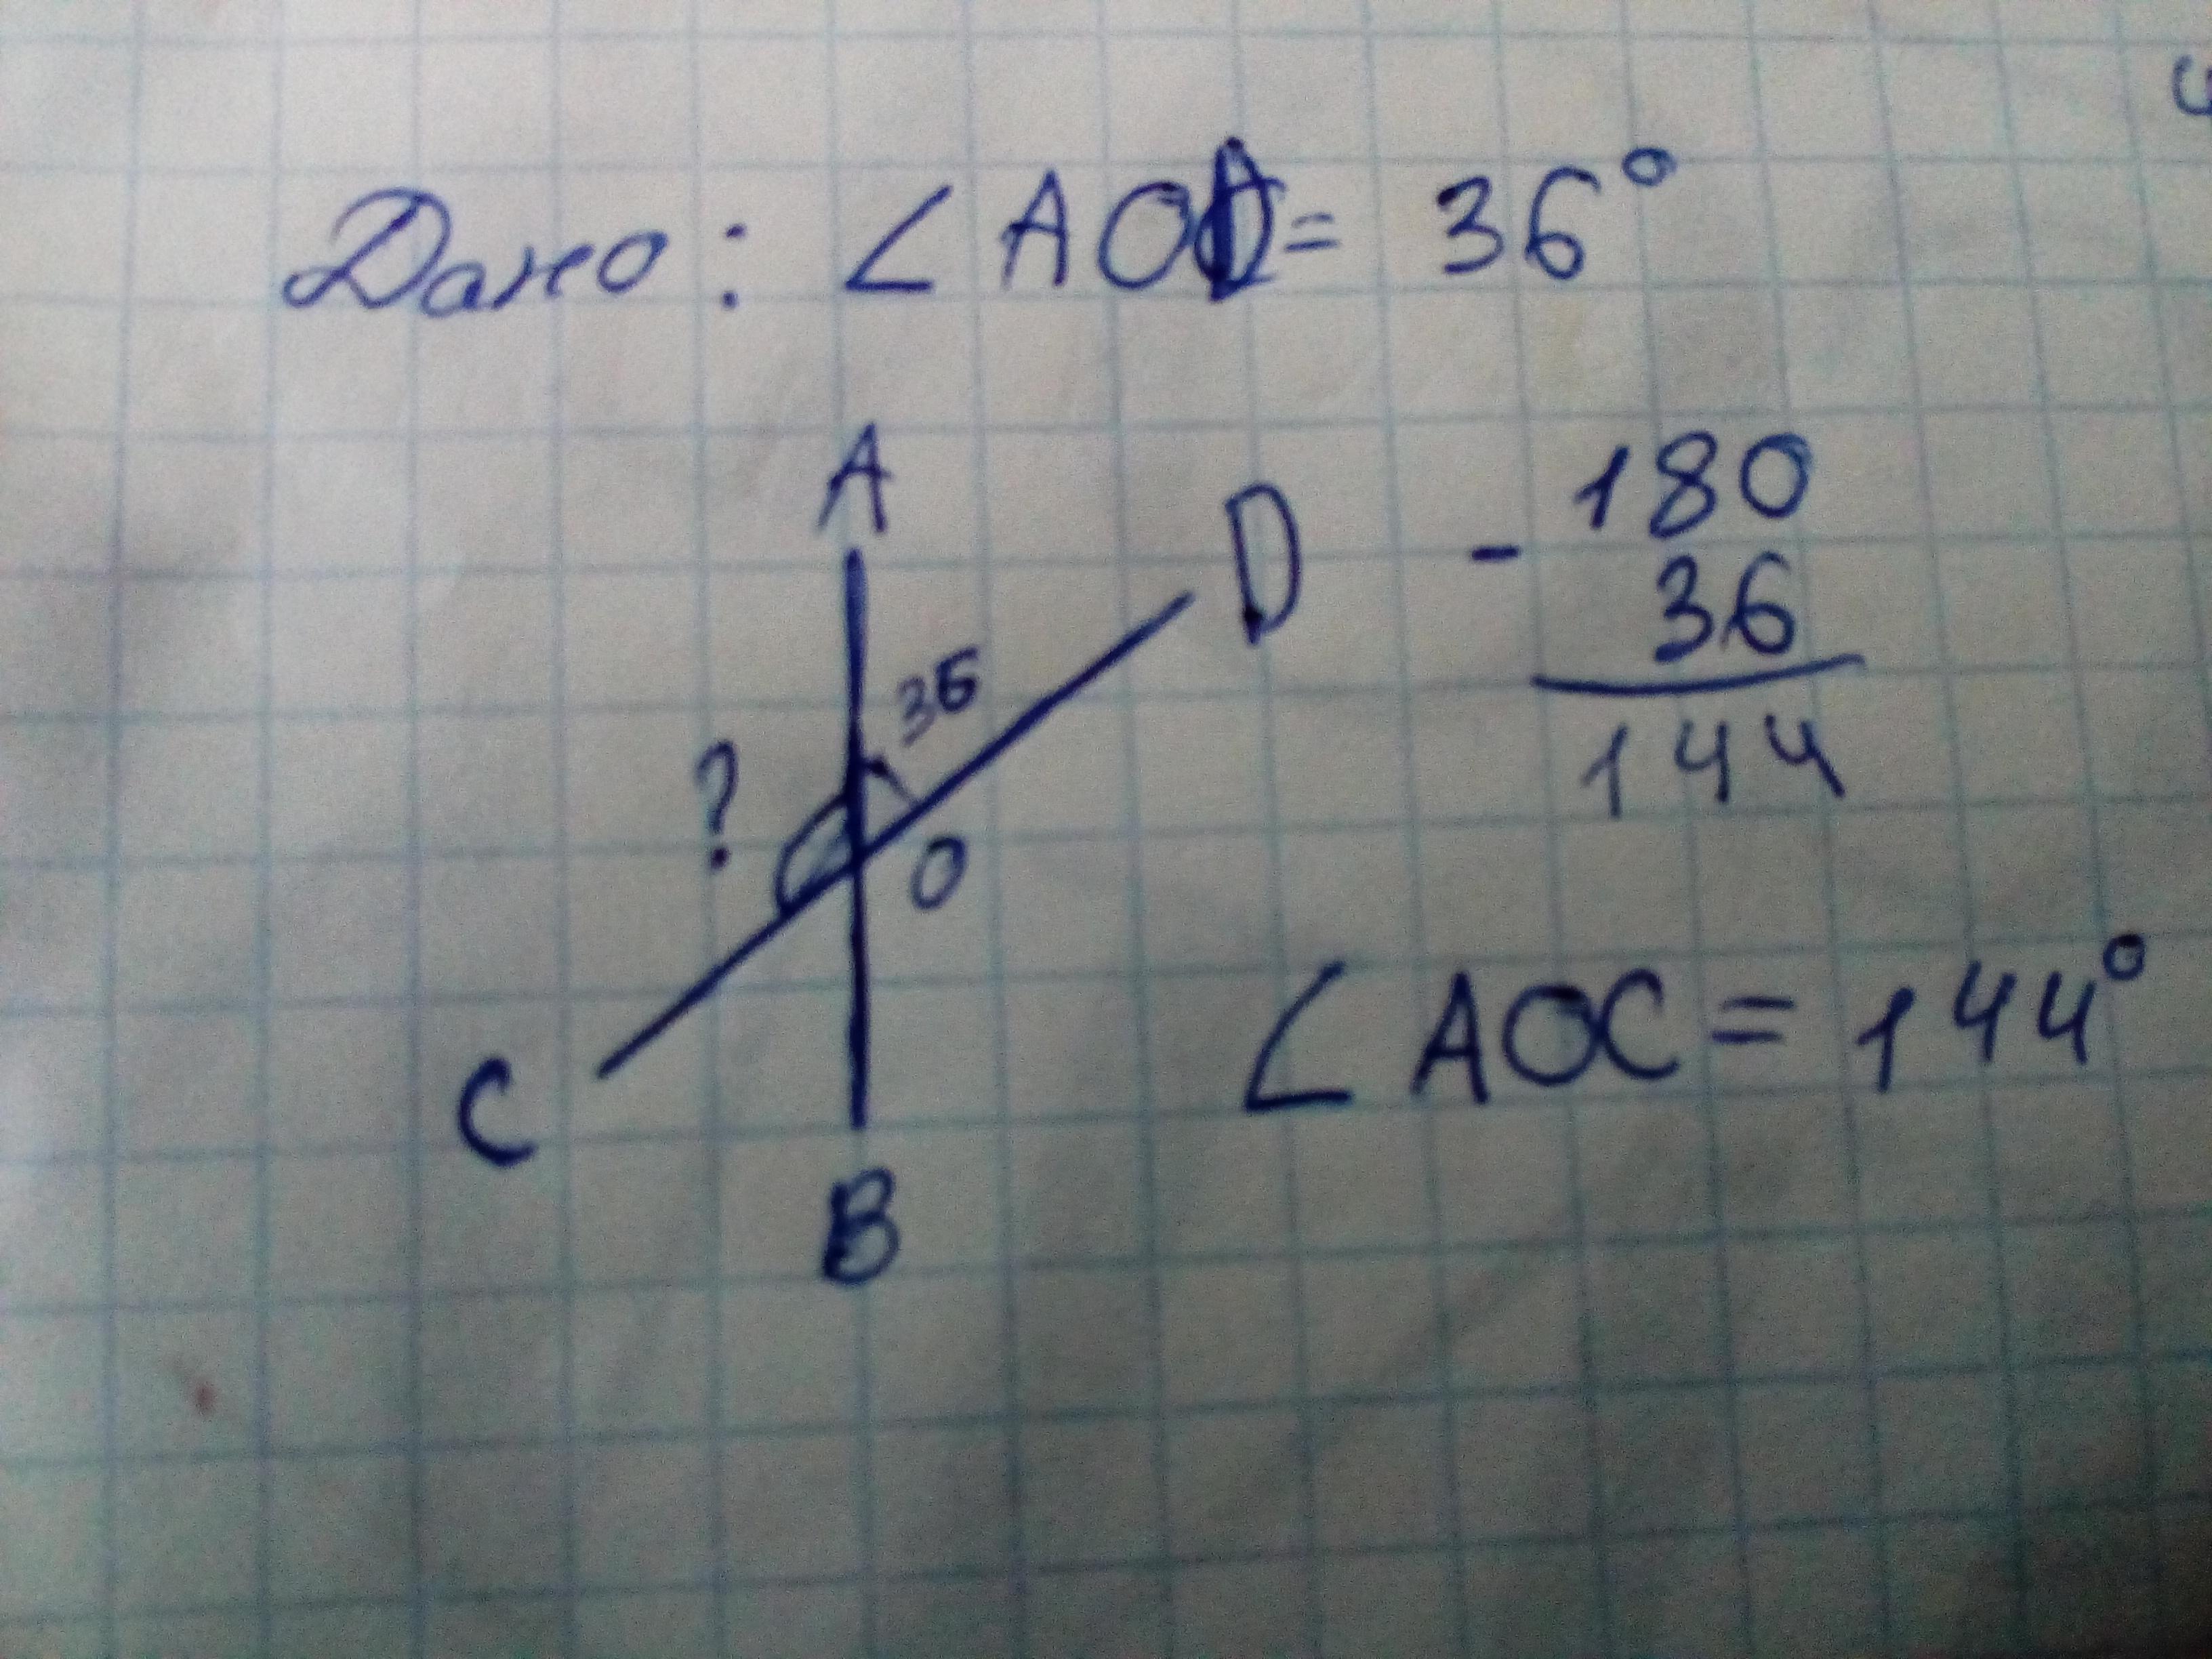 Дано: ∠AOD = 36°
A
D
36
?
O
C
B
- 180
36
144
∠AOC = 144°